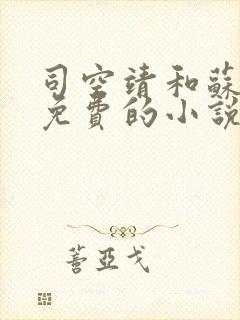 司空靖和蘇
免費的小說
蕃亞戈